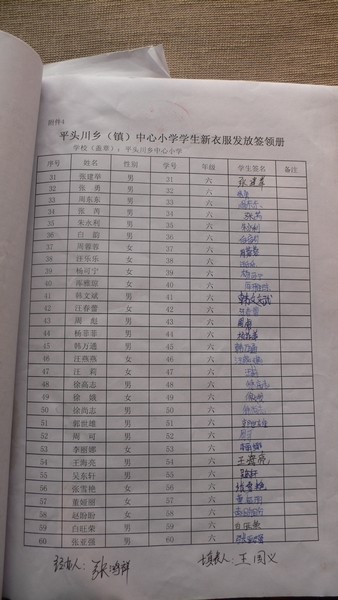 附件4
平头川乡（镇）中心小学学生新衣服发放签领册
学校（盖章）：平头川乡中心小学
序号 姓名 性别 学号 年级 学生签名 备注
31 张建华 男 31 六 张建华
32 张勇 男 32 六
33 周东东 男 33 六
34 张芮 男 34 六 张芮
35 朱永利 男 35 六 朱永利
36 白韵 男 36 六
37 周蓉蓉 女 37 六
38 汪乐乐 女 38 六
39 杨可宁 女 39 六
40 女 40 六
41 韩文斌 男 41 六 韩文斌
42 汪春蕾 女 42 六
43 周彪 男 43 六 周彪
44 杨菲菲 男 44 六
45 韩万通 男 45 六 韩万通
46 汪燕燕 女 46 六
47 汪莉 女 47 六 汪莉
48 徐高志 男 48 六
49 徐娥 女 49 六
50 徐尚志 男 50 六
51 郭世雄 男 51 六
52 周可 男 52 六
53 李丽娜 女 53 六
54 王海亮 男 54 六 王海亮
55 吴东轩 男 55 六
56 张雪艳 女 56 六 张雪艳
57 董丽丽 女 57 六
58 赵盼盼 女 58 六
59 白旺荣 男 59 六 白旺荣
60 张亚强 男 60 六 张亚强
经办人：张鸿祥 填表人：王国义